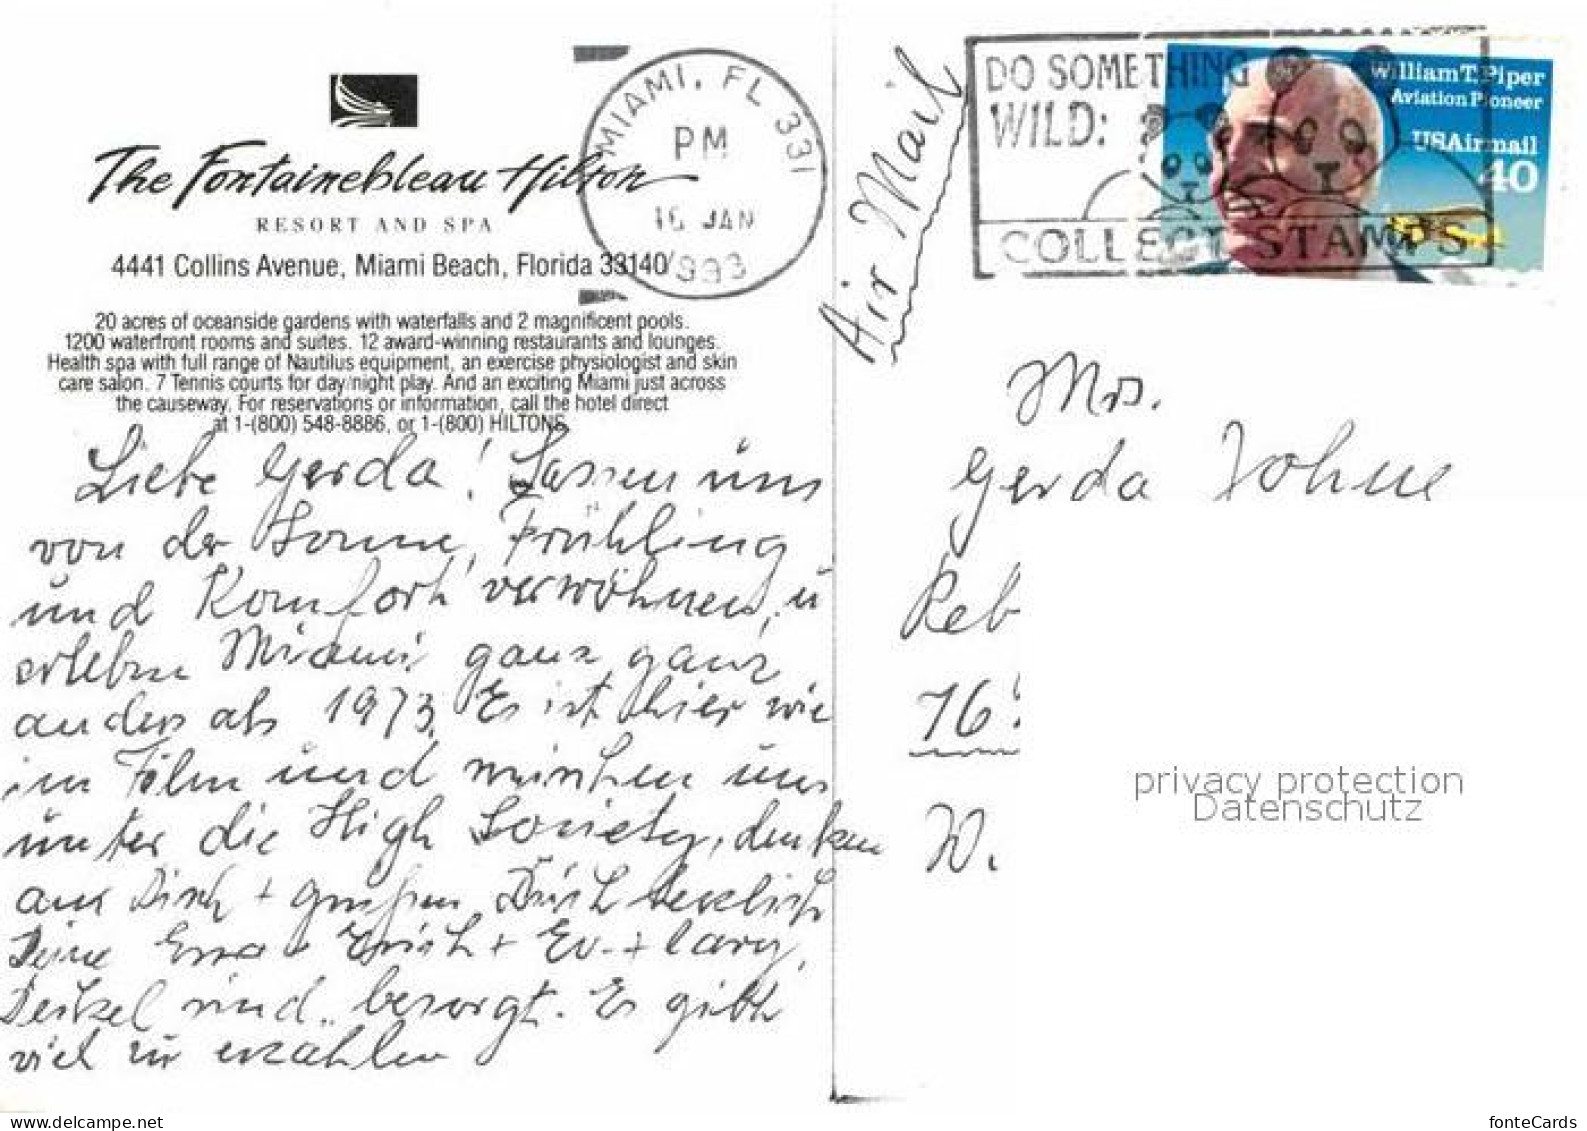 The Fontainebleau Hilton
RESORT AND SPA
4441 Collins Avenue, Miami Beach, Florida 33140
20 acres of oceanside gardens with waterfalls and 2 magnificent pools.
1200 waterfront rooms and suites. 12 award-winning restaurants and lounges.
Health spa with full range of Nautilus equipment, an exercise physiologist and skin
care salon. 7 Tennis courts for day/night play. And an exciting Miami just across
the causeway. For reservations or information, call the hotel direct
at 1-(800) 548-8886, or 1-(800) HILTONS.
Liebe Gerda! Lassen uns
von der Sonne, Frühling
und Komfort verwöhnen, u
erleben Miami ganz, ganz
anders als 1973. Es ist hier wie
im Film und mischen uns
unter die High Society, denken
an Dich + grüßen Dich herzlich
Deine Erna + Erich + Ev. + Lary,
sind besorgt. Es gibt
viel zu erzählen
MIAMI, FL 331
PM
16 JAN
1993
Air Mail
DO SOMETHING
WILD:
COLLECT STAMPS
William T. Piper
Aviation Pioneer
USAirmail
40
Mrs.
Gerda Johne
Reb
76
W.
privacy protection
Datenschutz
www.delcampe.net
fonteCards